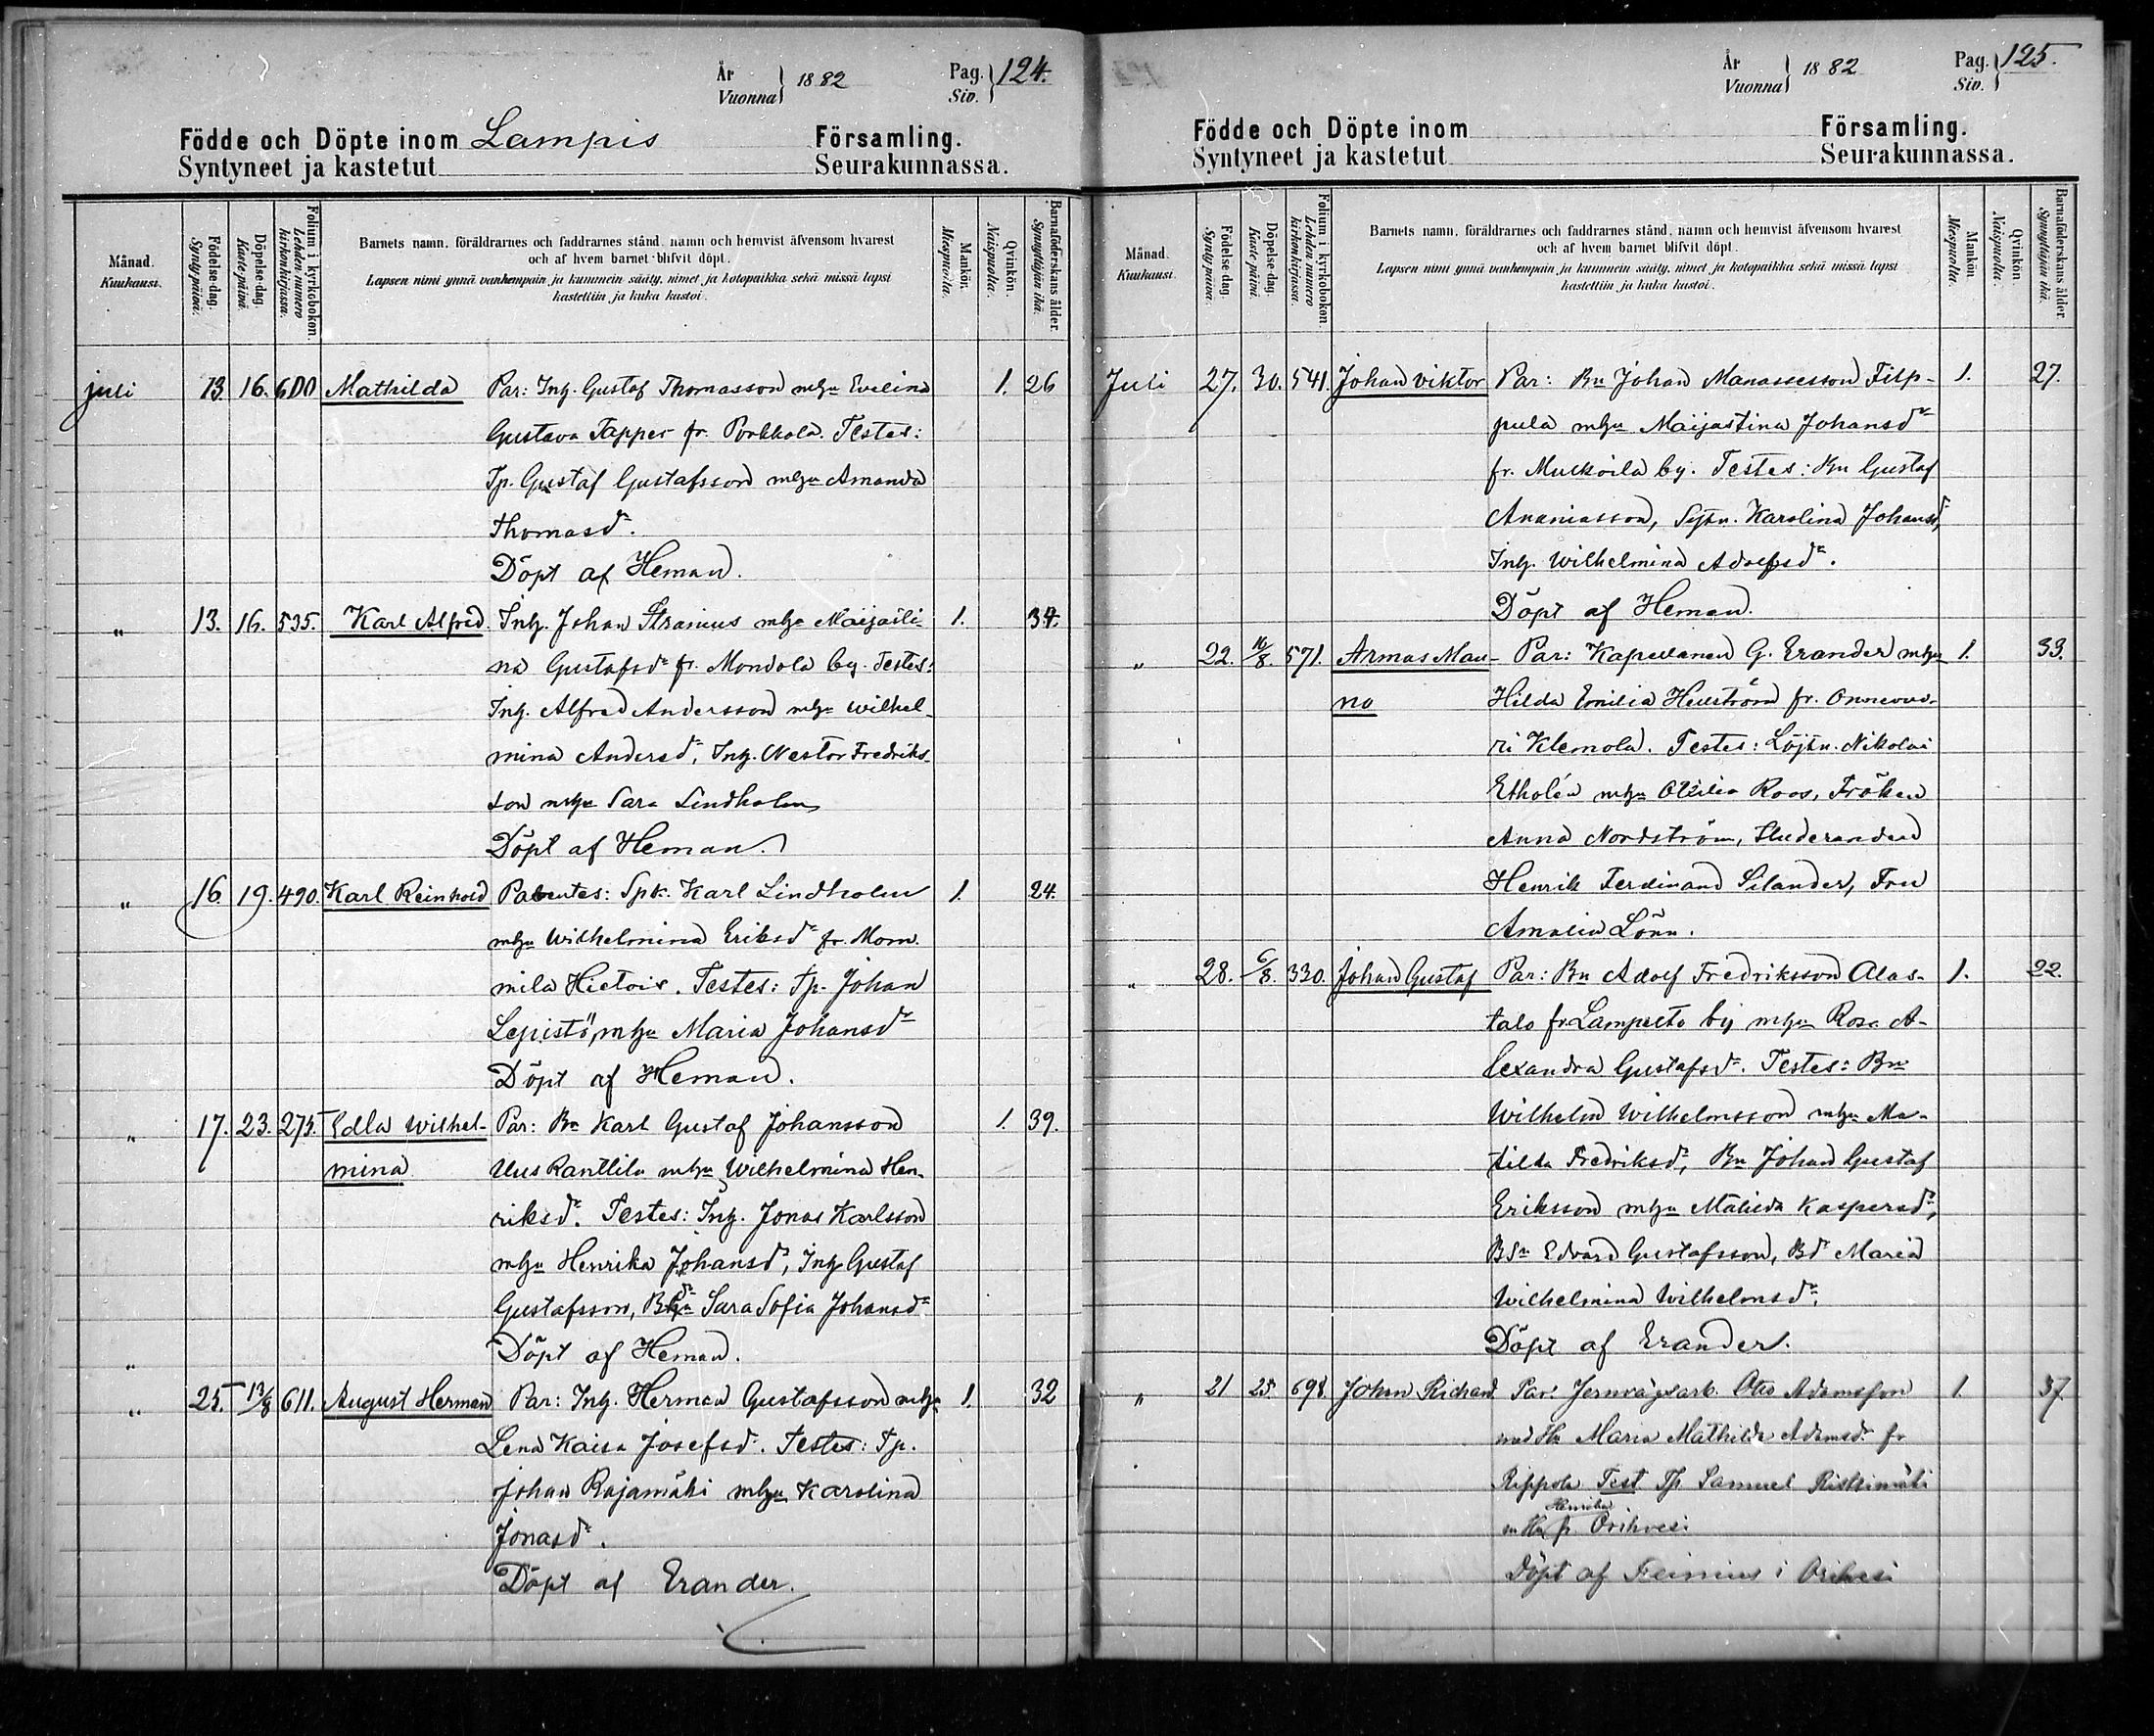 År
Vuonna } 1882 Pag.
Siv. } 124.
Födde och Döpte inom Lampis Församling.
Syntyneet ja kastetut Seurakunnassa.
Månad.
Kuukausi.
Födelse-dag.
Synty päivä.
Döpelse-dag.
Kaste päivä.
Folium i kyrkobokon.
Lehden numero
kirkonkirjassa.
Barnets namn, föräldrarnes och faddrarnes stånd, namn och hemvist äfvensom hvarest
och af hvem barnet blifvit döpt.
Lapsen nimi ynnä vanhempain ja kummein sääty, nimet ja kotopaikka sekä missä lapsi
kastettiin ja kuka kastoi.
Mankön.
Miespuolta.
Qvinkön.
Naispuolta.
Barnaföderskans ålder.
Synnyttäjän ikä.
juli 13. 16. 600 Mathilda Par: Inh. Gustaf Thomasson mhu Evelina 1. 26
Gustava Tapper fr. Porkkola. Testes:
Tp. Gustaf Gustafsson mhu Amanda
Thomasdr.
Döpt af Heman.
" 13. 16. 535. Karl Alfred. Inh. Johan Stranius mhu Maijasti- 1. 34.
na Gustafsdr fr. Mondola by. Testes:
Inh. Alfred Andersson mhu Wilhel-
mina Andersdr, Inh. Nestor Fredriks-
son mhu Sara Lindholm
Döpt af Heman.
" 16. 19. 490. Karl Reinhold Parentes: Spk. Karl Lindholm 1. 24.
mhu Wilhelmina Eriksdr fr. Mom-
mila Hietois. Testes: Tp. Johan
Lepistö, mhu Maria Johansdr
Döpt af Heman.
" 17. 23. 275. Edla Wilhel- Par: Bn Karl Gustaf Johansson 1. 39.
mina Uus Ranttila mhu Wilhelmina Hen-
riksdr. Testes: Inh. Jonas Karlsson
mhu Henrika Johansdr, Inh Gustaf
Gustafsson, Sara Sofia Johansdr
" Döpt af Heman.
" 25. 13/8 611. August Herman Par: Inh. Herman Gustafsson mhu 1. 32
Lena Kaisa Josefsdr. Testes: Tp.
Johan Rajamäki mhu Karolina
Jonasdr.
Döpt af Erander.
År
Vuonna } 1882 Pag.
Siv. } 125.
Födde och Döpte inom Församling.
Syntyneet ja kastetut Seurakunnassa.
Månad.
Kuukausi.
Födelse-dag.
Synty päivä.
Döpelse-dag.
Kaste päivä.
Folium i kyrkobokon.
Lehden numero
kirkonkirjassa.
Barnets namn, föräldrarnes och faddrarnes stånd, namn och hemvist äfvensom hvarest
och af hvem barnet blifvit döpt.
Lapsen nimi ynnä vanhempain ja kummein sääty, nimet ja kotopaikka sekä missä lapsi
kastettiin ja kuka kastoi.
Mankön.
Miespuolta.
Qvinkön.
Naispuolta.
Barnaföderskans ålder.
Synnyttäjän ikä.
Juli 27. 30. 541. Johan Viktor Par: Bn Johan Manassesson Filp- 1. 27.
pula mhu Maijastina Johansdr
fr. Mulkoila by. Testes: Bn Gustaf
Ananiasson, Sytn. Karolina Johansdr,
Inh. Wilhelmina Adolfsdr.
Döpt af Heman.
" 22. 16/8 571. Armas Mau- Par: Kapellanen G. Erander mhu 1. 33.
no Hilda Emilia Hellström fr. Onnenvuo-
ri Klemola. Testes: Löjtn. Nikolai
Etholén mhu Cecilia Roos, Fröken
Anna Nordström, Studeranden
Henrik Ferdinand Silander, Fru
Amalia Lönn.
" 28. 6/8. 330. Johan Gustaf Par: Bn Adolf Fredriksson Alas- 1. 22.
talo fr. Lampelto by mhu Rosa A-
lexandra Gustafsdr. Testes: Bn
Wilhelm Wilhelmsson mhu Ma-
tilda Fredriksdr, Bn Johan Gustaf
Eriksson mhu Matilda Kaspersdr,
BSn Edvard Gustafsson, Bdr Maria
Wilhelmina Wilhelmsdr.
Döpt af Erander.
" 21 25 698 Johan Richard Par: Jernvägsarb. Otto Adamsson 1. 37.
med Hu Maria Mathilda Adamsdr fr
Rippola Test Tp Samuel Ristimäki
Henrika
m Hu fr Orihvesi
Döpt af i Orihvesi